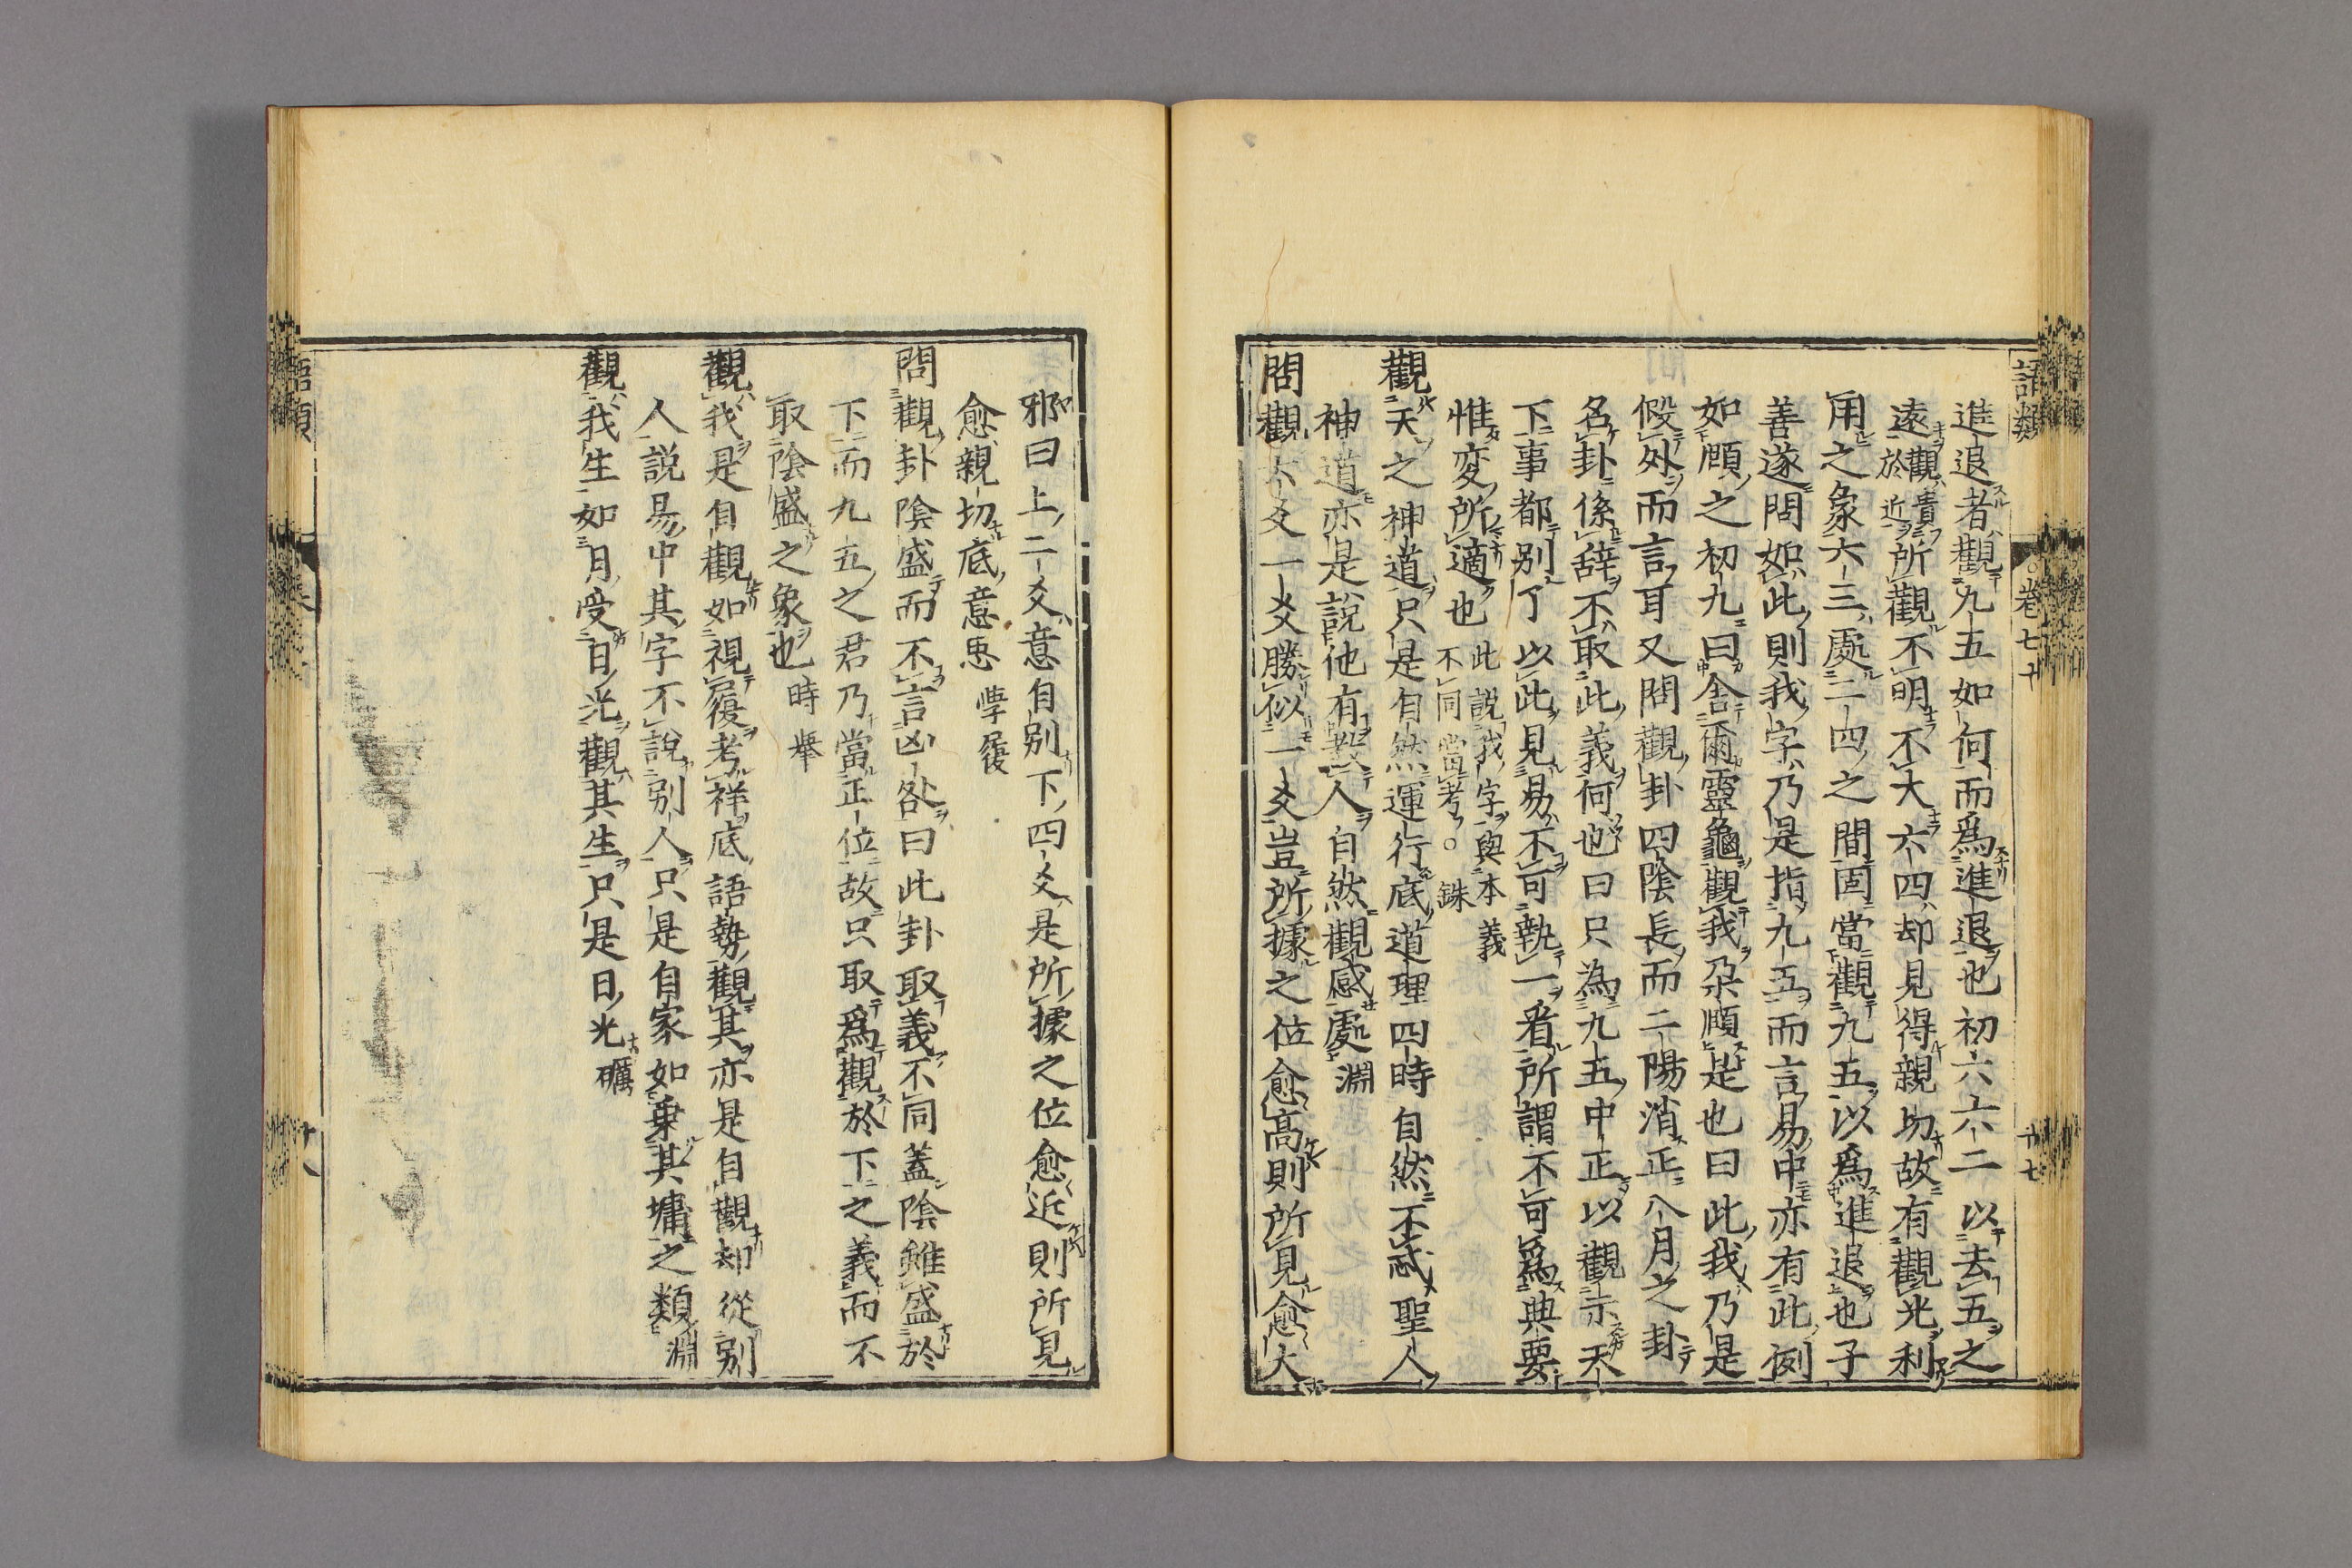 語類 卷七十 十七
進退者觀九五如何而爲進退也初六六二以去五之
遠觀貴於近所觀不明不大六四却見得親切故有觀光利
用之象六三處二四之間固當觀九五以爲進退也子
善遂問如此則我字乃是指九五而言易中亦有此例
如頤之初九曰舍爾靈龜觀我朶頤是也曰此我乃是
假外而言耳又問觀卦四陰長而二陽消正八月之卦
名卦係辞不取此義何也曰只為九五中正以觀示天
下事都别了以此見易不可執一看所謂不可爲典要
惟変所適也 此説我字與本義不同當考○銖
觀天之神道只是自然運行底道理四時自然不忒聖人
神道亦是說他有敎人自然觀感處 淵
問觀六爻一爻勝似一爻豈所據之位愈高則所見愈大
邪曰上二爻意自别下四爻是所據之位愈近則所見
愈親切底意思 學履
問觀卦陰盛而不言凶咎曰此卦取義不同蓋陰雖盛於
下而九五之君乃當正位故只取爲觀於下之義而不
取陰盛之象也 時擧
觀我是自觀如視履考祥底語勢觀其亦是自觀却從别
人說易中其字不說别人只是自家如乗其墉之類 淵
觀我生如月受日光觀其生只是日光 礪
語類